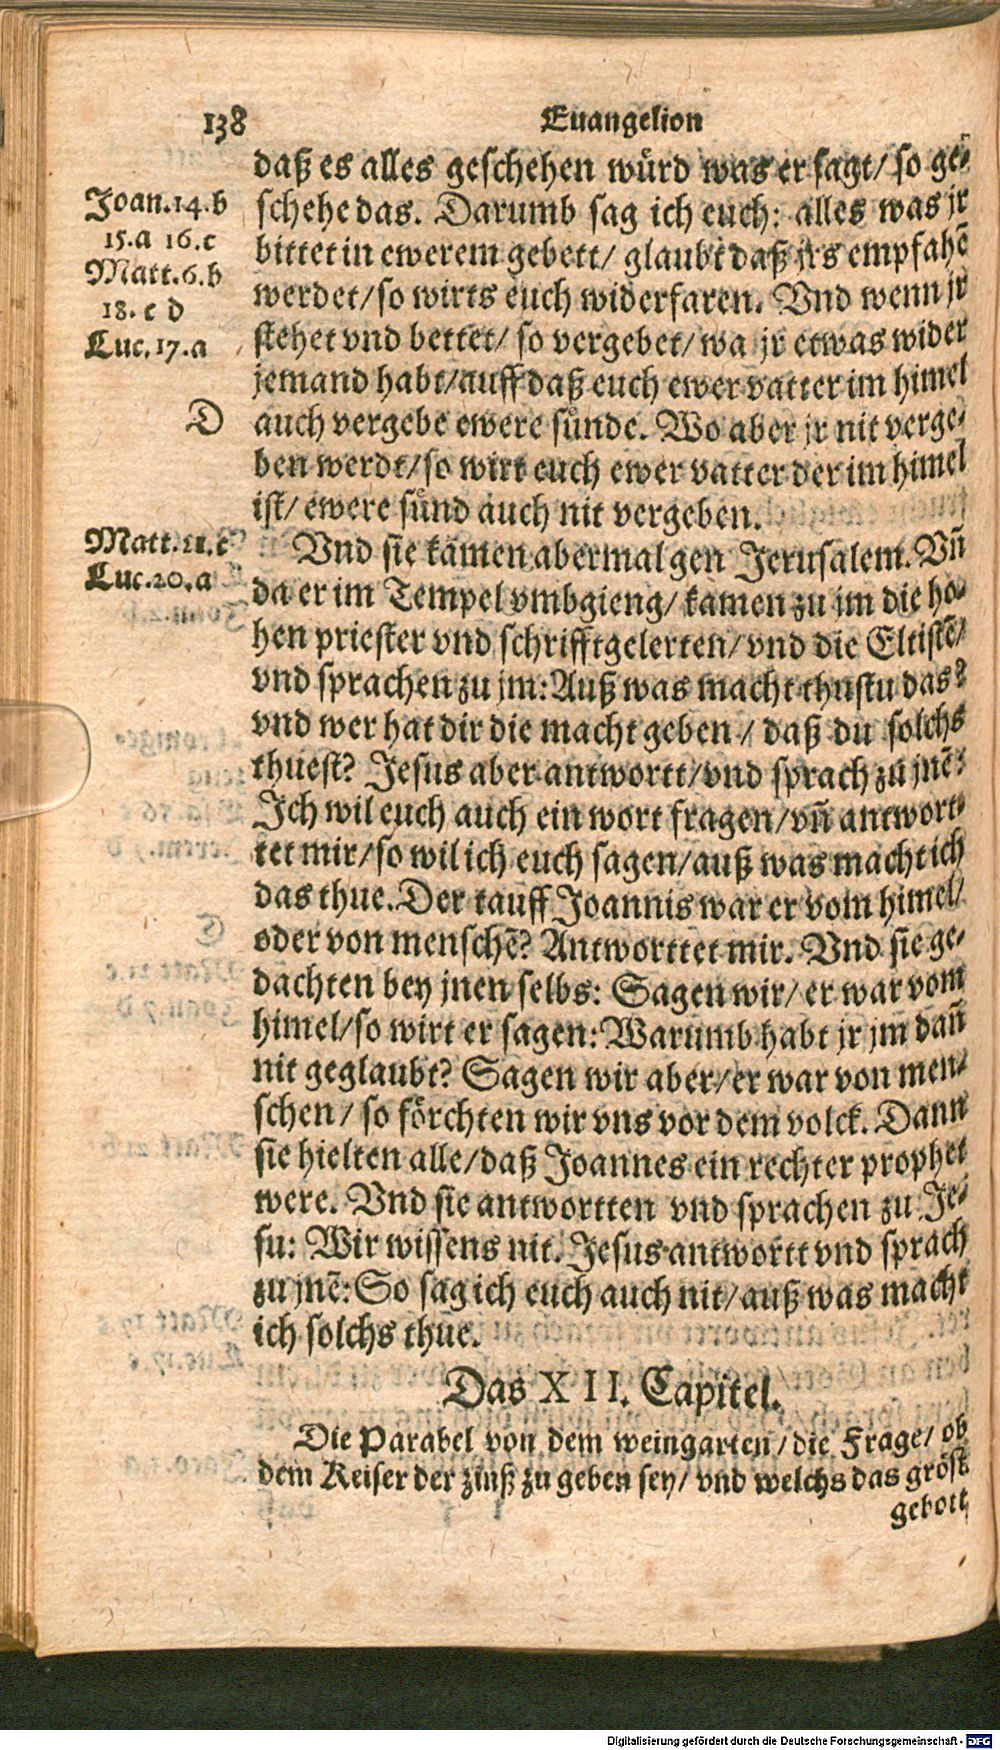 138 Euangelion
daß es alles geschehen wuͤrd was er sagt/ so ge-
Joan.14.b
15.a 16.c
Matt.6.b
18. c d
Luc.17.a
schehe das. Darumb sag ich euch: alles was jr
bittet in ewerem gebett/ glaubt daß jrs empfahẽ
werdet/ so wirts euch widerfaren. Vnd wenn jr
stehet vnd bettet/ so vergebet/ wa jr etwas wider
jemand habt/ auff daß euch ewer vatter im himel
D
auch vergebe ewere suͤnde. Wo aber jr nit verge-
ben werdt/ so wirt euch ewer vatter der im himel
ist/ ewere suͤnd auch nit vergeben.
Matt.21.c
Luc.20.a
Vnd sie kamen abermal gen Jerusalem. Vñ
da er im Tempel vmbgieng/ kamen zu jm die ho-
hen priester vnd schrifftgelerten/ vnd die Eltistẽ/
vnd sprachen zu jm: Auß was macht thustu das?
vnd wer hat dir die macht geben/ daß du solchs
thuest? Jesus aber antwortt/ vnd sprach zu jnẽ:
Ich wil euch auch ein wort fragen/ vñ antwort-
tet mir/ so wil ich euch sagen/ auß was macht ich
das thue. Der tauff Joannis war er vom himel/
oder von menschẽ? Antworttet mir. Vnd sie ge-
dachten bey jnen selbs: Sagen wir/ er war vom
himel/ so wirt er sagen: Warumb habt jr jm dañ
nit geglaubt? Sagen wir aber/ er war von men-
schen/ so foͤrchten wir vns vor dem volck. Dann
sie hielten alle/ daß Joannes ein rechter prophet
were. Vnd sie antwortten vnd sprachen zu Je-
su: Wir wissens nit. Jesus antwortt vnd sprach
zu jnẽ: So sag ich euch auch nit/ auß was macht
ich solchs thue.
Das XII. Capitel.
Die Parabel von dem weingarten/ die Frage/ ob
dem Keiser der zinß zu geben sey/ vnd welchs das groͤst
gebott
Digitalisierung gefördert durch die Deutsche Forschungsgemeinschaft - DFG